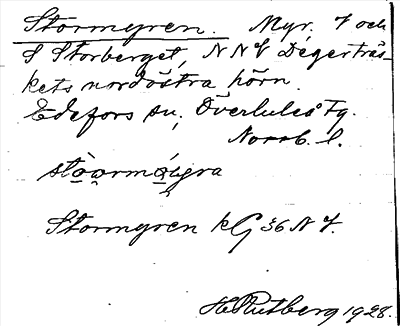 Stormyren. Myr, V och
S Storberget, NNV Degerträs-
kets nordöstra hörn.
Edefors sn, Överluleå Tg.
Norrb. l.
Stormyren kG 36 NV.
H Rutberg 1928.